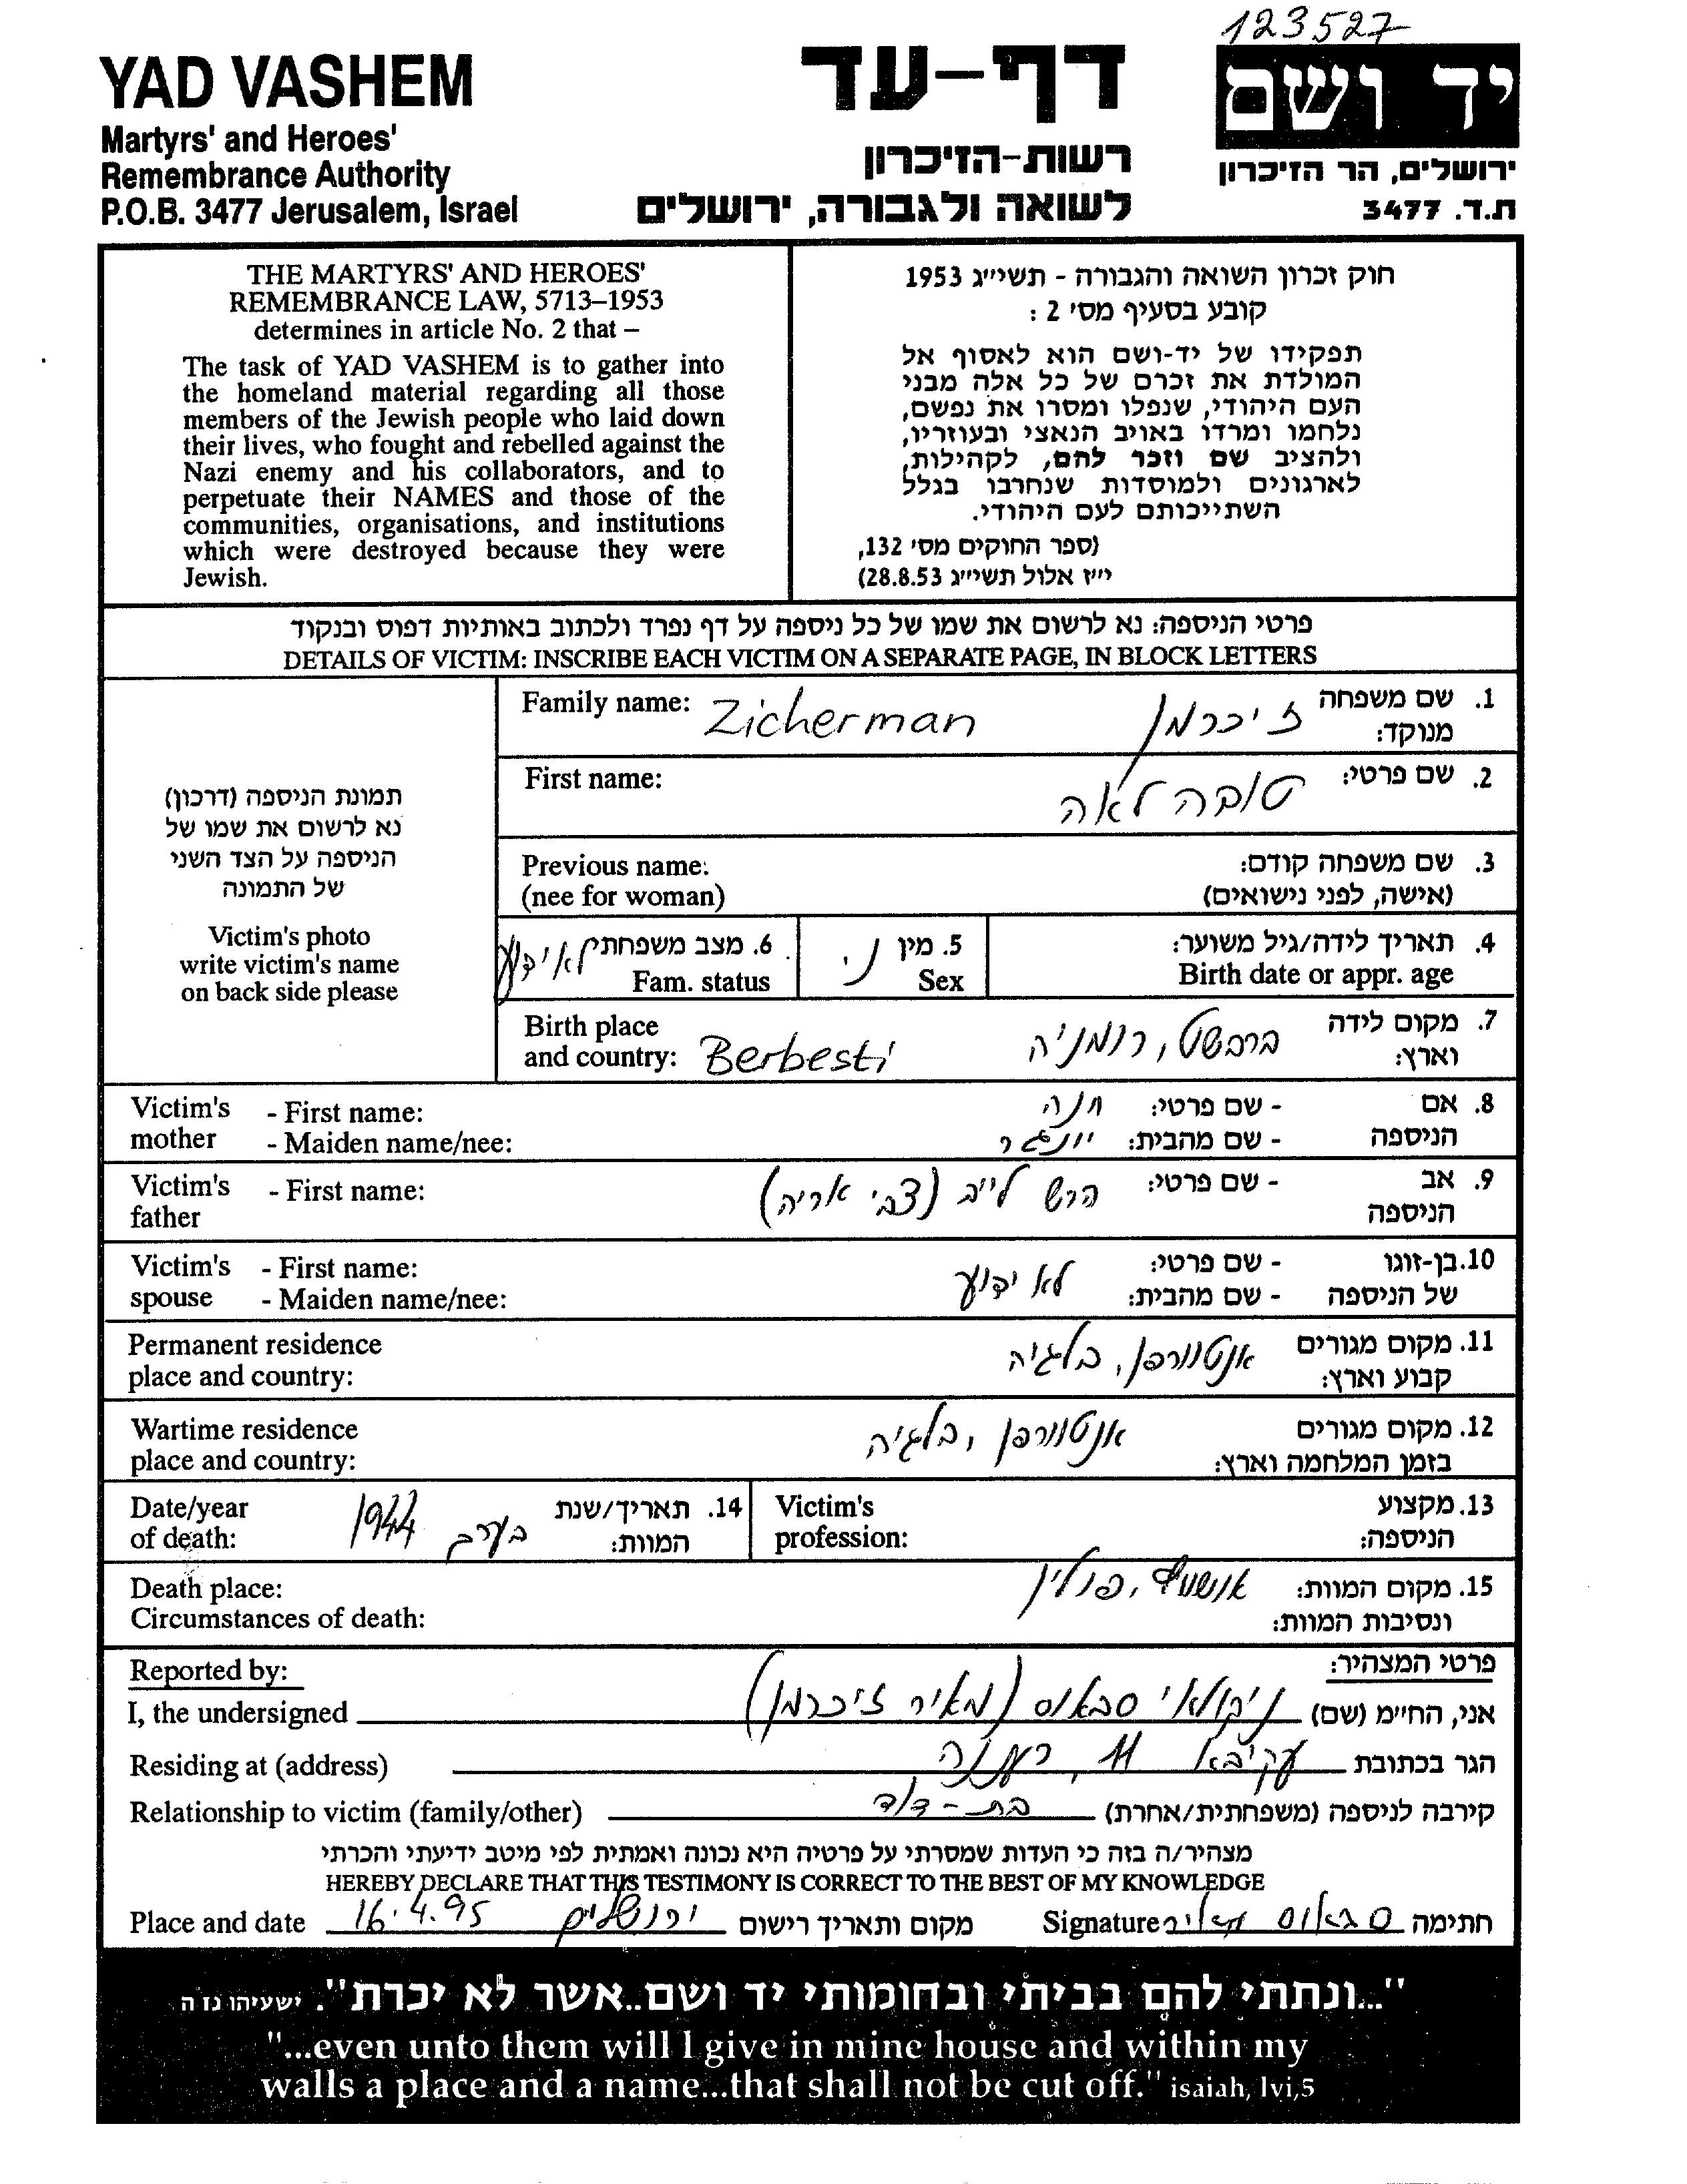 123527
YAD VASHEM
Martyrs' and Heroes'
Remembrance Authority
P.O.B. 3477 Jerusalem, Israel
דף-עד
רשות-הזיכרון
לשואה ולגבורה, ירושלים
יד ושם
ירושלים, הר הזיכרון
ת.ד. 3477
THE MARTYRS' AND HEROES'
REMEMBRANCE LAW, 5713–1953
determines in article No. 2 that –
The task of YAD VASHEM is to gather into
the homeland material regarding all those
members of the Jewish people who laid down
their lives, who fought and rebelled against the
Nazi enemy and his collaborators, and to
perpetuate their NAMES and those of the
communities, organisations, and institutions
which were destroyed because they were
Jewish.
חוק זכרון השואה והגבורה - תשי״ג 1953
קובע בסעיף מס׳ 2 :
תפקידו של יד-ושם הוא לאסוף אל
המולדת את זכרם של כל אלה מבני
העם היהודי, שנפלו ומסרו את נפשם,
נלחמו ומרדו באויב הנאצי ובעוזריו,
ולהציב שם וזכר להם, לקהילות,
לארגונים ולמוסדות שנחרבו בגלל
השתייכותם לעם היהודי.
(ספר החוקים מס׳ 132,
י״ז אלול תשי״ג 28.8.53)
פרטי הניספה: נא לרשום את שמו של כל ניספה על דף נפרד ולכתוב באותיות דפוס ובנקוד
DETAILS OF VICTIM: INSCRIBE EACH VICTIM ON A SEPARATE PAGE, IN BLOCK LETTERS
תמונת הניספה (דרכון)
נא לרשום את שמו של
הניספה על הצד השני
של התמונה
Victim's photo
write victim's name
on back side please
Family name: Zicherman זיכרמן 1. שם משפחה
מנוקד:
First name: טובה לאה 2. שם פרטי:
Previous name: 3. שם משפחה קודם:
(nee for woman) (אישה, לפני נישואים)
4. תאריך לידה/גיל משוער:
Birth date or appr. age
5. מין נ.
Sex
6. מצב משפחתי לא ידוע
Fam. status
Birth place
and country: Berbesti ברבשט, רומניה 7. מקום לידה
וארץ:
Victim's - First name: חנה - שם פרטי: 8. אם
mother - Maiden name/nee: יונגר - שם מהבית: הניספה
Victim's - First name: הרש לייב (צבי אריה) - שם פרטי: 9. אב
father הניספה
Victim's - First name: לא ידוע - שם פרטי: 10. בן-זוגו
spouse - Maiden name/nee: - שם מהבית: של הניספה
Permanent residence אנטוורפן, בלגיה 11. מקום מגורים
place and country: קבוע וארץ:
Wartime residence אנטוורפן, בלגיה 12. מקום מגורים
place and country: בזמן המלחמה וארץ:
Victim's 13. מקצוע
profession: הניספה:
Date/year 1944 בערב 14. תאריך/שנת
of death: המוות:
Death place: אושוויץ, פולין 15. מקום המוות:
Circumstances of death: ונסיבות המוות:
Reported by: פרטי המצהיר:
I, the undersigned ניקולאי סבאוס (מאיר זיכרמן) אני, החי״מ (שם)
Residing at (address) עקיבא 11, רעננה הגר בכתובת
Relationship to victim (family/other) בת-דוד קירבה לניספה (משפחתית/אחרת)
מצהיר/ה בזה כי העדות שמסרתי על פרטיה היא נכונה ואמתית לפי מיטב ידיעתי והכרתי
HEREBY DECLARE THAT THIS TESTIMONY IS CORRECT TO THE BEST OF MY KNOWLEDGE
Place and date 16.4.95 ירושלים מקום ותאריך רישום Signature סבאוס מאיר חתימה
"...ונתתי להם בביתי ובחומותי יד ושם..אשר לא יכרת". ישעיהו נז ה
"...even unto them will I give in mine house and within my
walls a place and a name...that shall not be cut off." isaiah, lvi,5